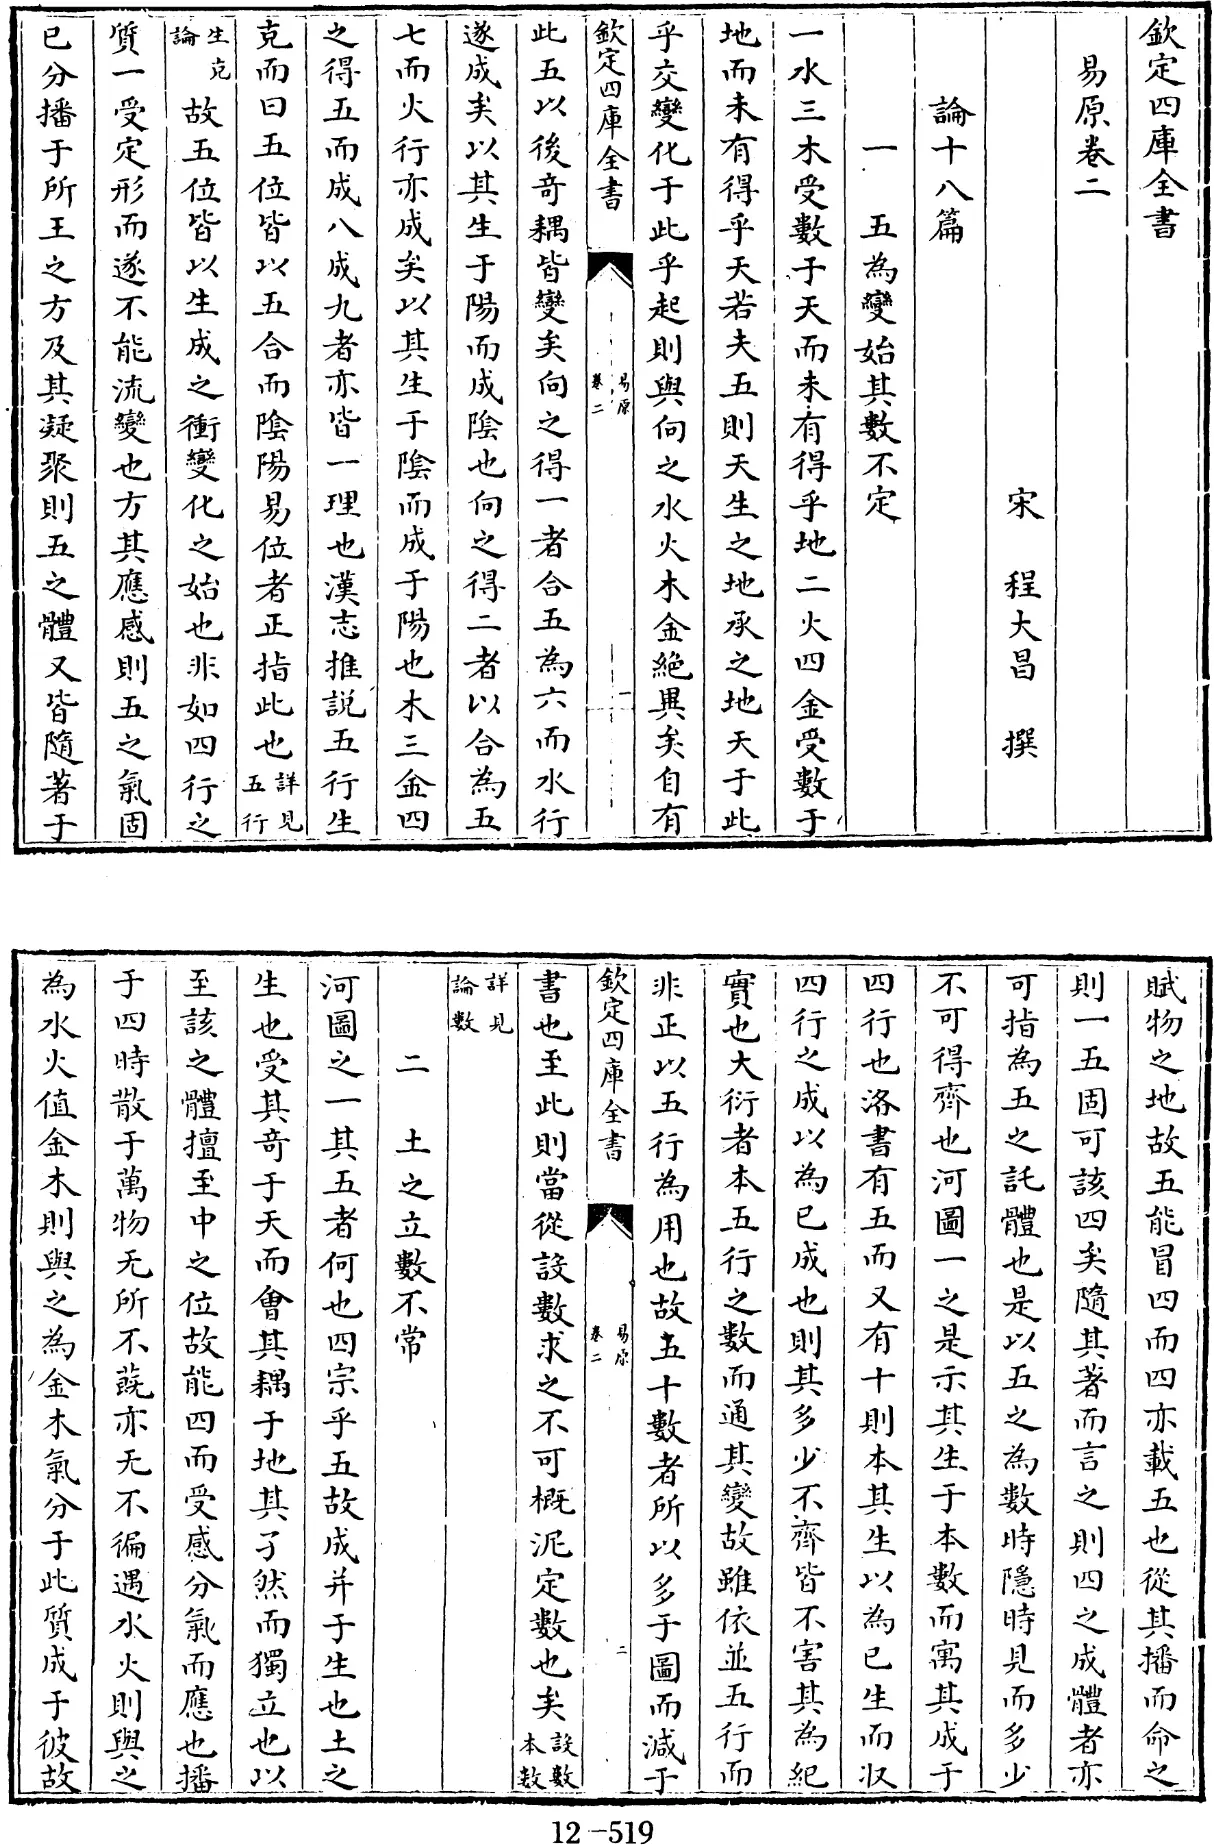 欽定四庫全書
易原卷二
宋 程大昌 撰
論十八篇
一 五為變始其數不定
一水三木受數于天而未有得乎地二火四金受數于
地而未有得乎天若夫五則天生之地承之地天于此
乎交變化于此乎起則與向之水火木金絶異矣自有
欽定四庫全書
易原
卷二
一
此五以後奇耦皆變矣向之得一者合五為六而水行
遂成矣以其生于陽而成陰也向之得二者以合為五
七而火行亦成矣以其生于陰而成于陽也木三金四
之得五而成八成九者亦皆一理也漢志推説五行生
克而曰五位皆以五合而陰陽易位者正指此也詳見五行
生克論故五位皆以生成之衝變化之始也非如四行之
質一受定形而遂不能流變也方其應感則五之氣固
已分播于所王之方及其凝聚則五之體又皆隨著于
賦物之地故五能冒四而四亦載五也從其播而命之
則一五固可該四矣隨其著而言之則四之成體者亦
可指為五之託體也是以五之為數時隱時見而多少
不可得齊也河圖一之是示其生于本數而寓其成于
四行也洛書有五而又有十則本其生以為已生而収
四行之成以為已成也則其多少不齊皆不害其為紀
實也大衍者本五行之數而通其變故雖依並五行而
非正以五行為用也故五十數者所以多于圖而減于
欽定四庫全書
易原
卷二
二
書也至此則當從設數求之不可概泥定數也矣設數本數
詳見論數
二 土之立數不常
河圖之一其五者何也四宗乎五故成并于生也土之
生也受其奇于天而會其耦于地其孑然而獨立也以
至該之體擅至中之位故能四而受感分氣而應也播
于四時散于萬物无所不蓺亦无不徧遇水火則與之
為水火值金木則與之為金木氣分于此質成于彼故
12-519